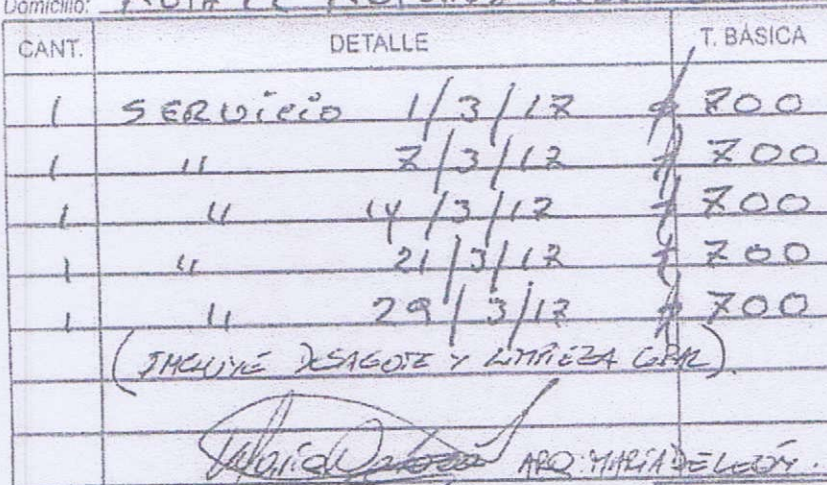 Domicilio: RUTA
CANT. DETALLE T. BÁSICA
1 SERVICIO 1/3/17 $ 700
1 " 7/3/17 $ 700
1 " 14/3/17 $ 700
1 " 21/3/17 $ 700
1 " 29/3/17 $ 700
(INCLUYE DESAGOTE Y LIMPIEZA GRAL).
ARQ. MARIA DE LEÓN.